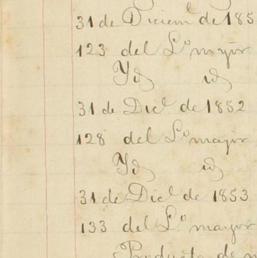 31 de Diciem.e de 185
123 del L.o mayor
Yd id
31 de Dic.e de 1852
128 del L.o mayor
Yd id
31 de Dic.e de 1853
133 del L.o mayor
Producto de